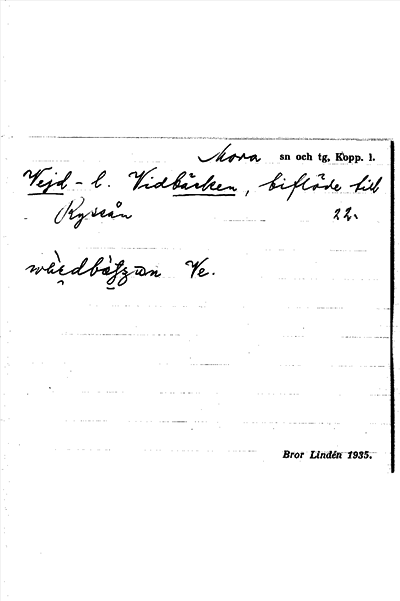 Mora sn och tg, Kopp. l.
Vejd- l. Vidbäcken, biflöde till
Ryssån 22.
Ve.
Bror Lindén 1935.